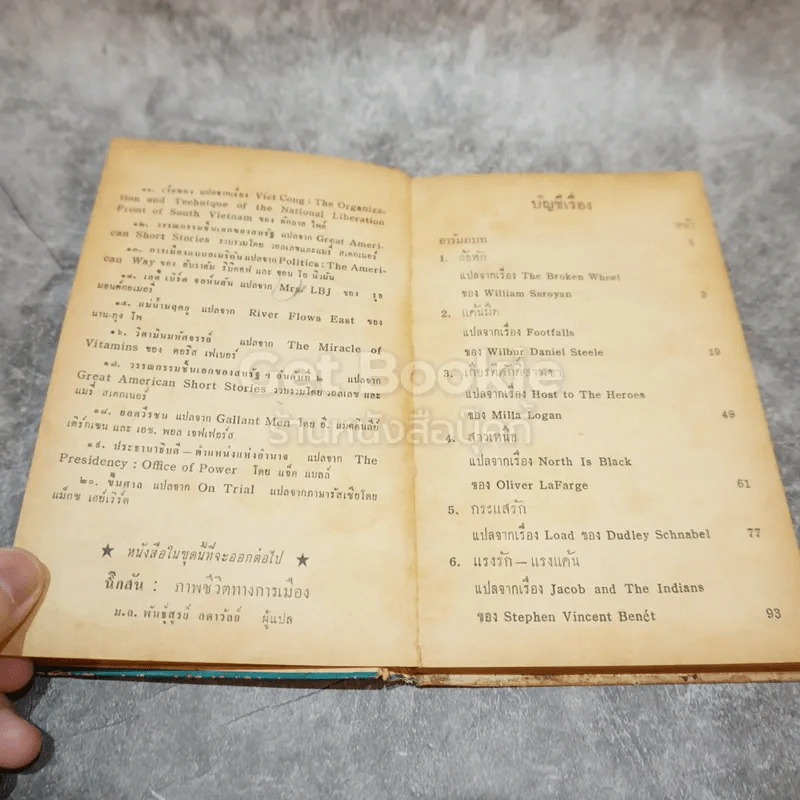 ๑๑. เวียดกง แปลจากเรื่อง Viet Cong : The Organiza-
tion and Technique of the National Liberation
Front of South Vietnam ของ ดักลาส ไพค์
๑๒. วรรณกรรมชิ้นเอกของสหรัฐ แปลจาก Great Ameri-
can Short Stories รวบรวมโดย วอลเลซและแมรี่ สเตกเนอร์
๑๓. การเมืองแบบอเมริกัน แปลจาก Politics : The Ameri-
can Way ของ อับราฮัม ริบิคอฟ และ จอน โอ นิวมัน
๑๔. เลดี้ เบิร์ด จอห์นสัน แปลจาก Mrs. LBJ ของ รูธ
มอนต์กอเมอรี่
๑๕. แม่น้ำมฤตยู แปลจาก River Flows East ของ
นาน-กุง โพ
๑๖. วิตามินมหัศจรรย์ แปลจาก The Miracle of
Vitamins ของ ดอริส เฟเบอร์
๑๗. วรรณกรรมชิ้นเอกของสหรัฐ ฯ อันดับที่ ๒ แปลจาก
Great American Short Stories รวบรวมโดย วอลเลซ และ
แมรี่ สเตกเนอร์
๑๘. ยอดวีรชน แปลจาก Gallant Men โดย อี. แมคคินลีย์
เดิร์กเซน และ เอช. พอล เจฟเฟอร์ส
๑๙. ประธานาธิบดี — ตำแหน่งแห่งอำนาจ แปลจาก The
Presidency : Office of Power โดย แจ็ค แบลล์
๒๐. ขึ้นศาล แปลจาก On Trial แปลจากภาษารัสเซียโดย
แม็กซ เฮย์เวิร์ด
★ หนังสือในชุดนี้ที่จะออกต่อไป ★
นิกสัน : ภาพชีวิตทางการเมือง
ม.ล. พันธุ์สูรย์ ลดาวัลย์ ผู้แปล
บัญชีเรื่อง
หน้า
อารัมภบท
1. ล้อหัก
แปลจากเรื่อง The Broken Wheel
ของ William Saroyan 3
2. แค้นมืด
แปลจากเรื่อง Footfalls
ของ Wilbur Daniel Steele 19
3.
แปลจากเรื่อง Host to The Heroes
ของ Milla Logan 49
4. สาวเหนือ
แปลจากเรื่อง North Is Black
ของ Oliver LaFarge 61
5. กระแสรัก
แปลจากเรื่อง Load ของ Dudley Schnabel 77
6. แรงรัก — แรงแค้น
แปลจากเรื่อง Jacob and The Indians
ของ Stephen Vincent Benét 93
Get Bookie
ร้านหนังสือบุ๊คกี้